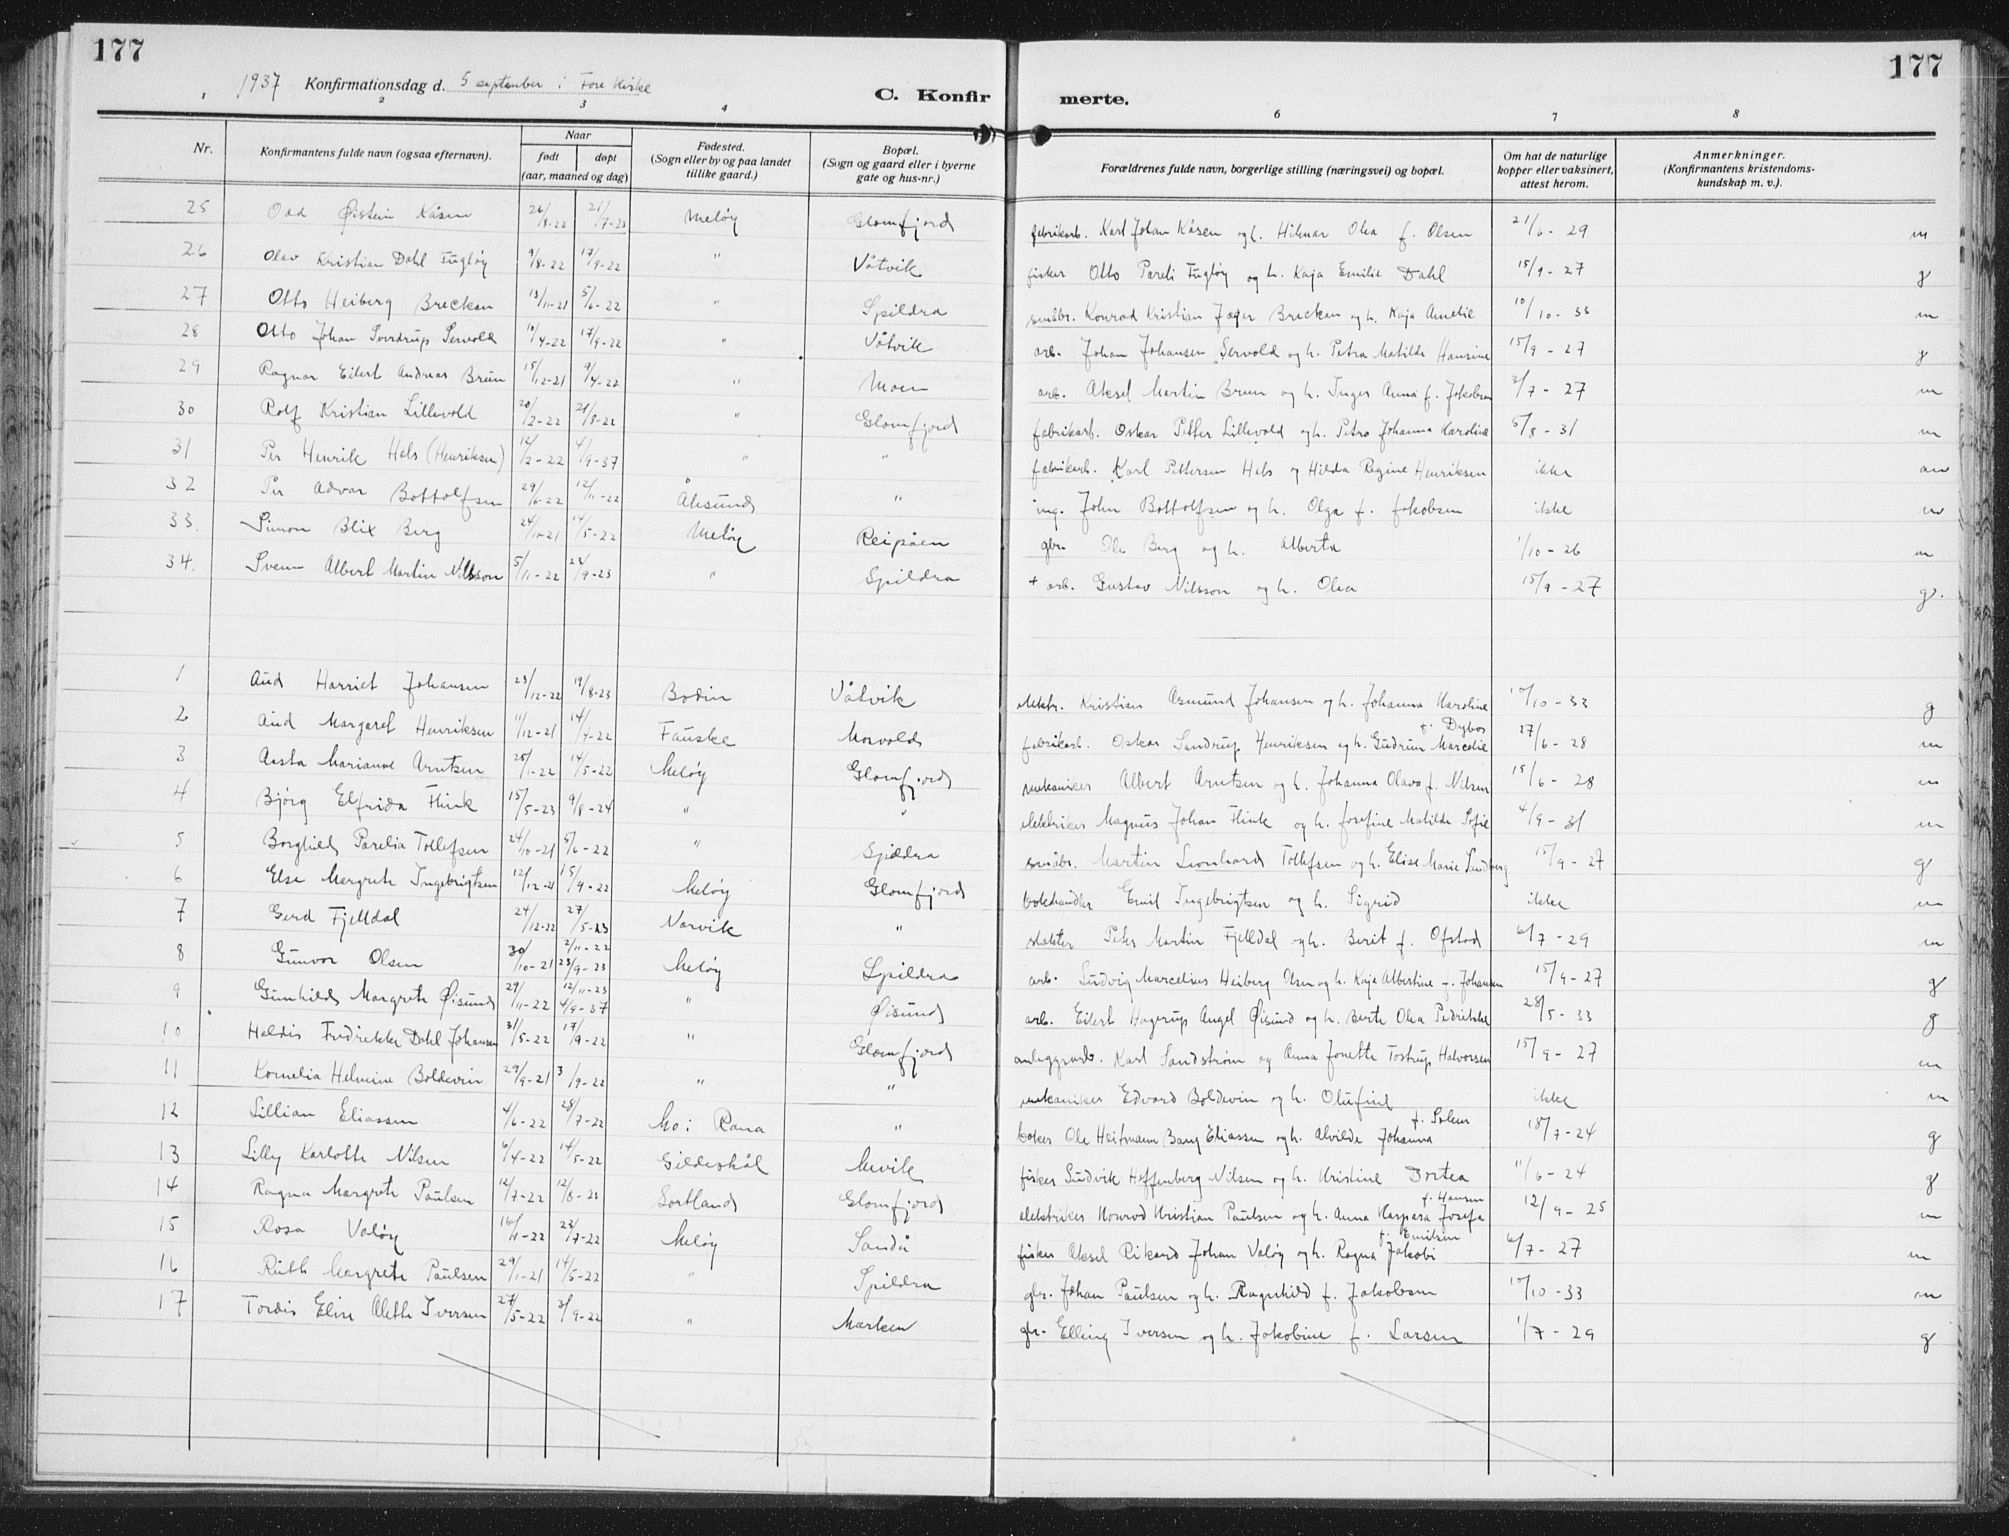 177
177
1937 Konfirmationsdag d. 5 september i Fore Kirke
C. Konfirmerte.
2 3 4 6 7 8
Nr.
Konfirmantens fulde navn (ogsaa efternavn).
Naar
født døpt
(aar, maaned og dag)
Fødested.
(Sogn eller by og paa landet
tillike gaard.)
Bopæl.
(Sogn og gaard eller i byerne
gate og hus-nr.)
Forældrenes fulde navn, borgerlige stilling (næringsvei) og bopæl.
Om hat de naturlige
kopper eller vaksinert,
attest herom.
Anmerkninger.
(Konfirmantens kristendoms-
kundskap m. v.).
25 Odd Øistein Kåsen 26/8-22 21/7-23 Meløy Glomfjord fabrikarb. Karl Johan Kåsen og h. Hilmar Olea f. Olsen 21/6-29 m
26 Olav Kristian Dahl Fugløy 9/8-22 17/9-22 " Våtvik fisker Otto Pareli Fugløy og h. Kaja Emilie Dahl 15/9-27 g
27 Otto Heiberg Breckan 13/11-21 5/6-22 " Spildra småbr. Konrad Kristian Jæger Breckan og h. Kaja Amelie 10/10-33 m
28 Otto Johan Sverdrup Servold 10/4-22 17/9-22 " Våtvik arb. Johan Johansen Servold og h. Petra Matilde Hansine 15/9-27 g
29 Ragnar Eilert Andreas Brun 15/12-21 9/4-22 " Moen arb. Aksel Martin Brun og h. Inger Anna f. Jakobsen 3/7-27 m
30 Rolf Kristian Lillevold 20/2-22 21/8-22 " Glomfjord fabrikarb. Oskar Petter Lillevold og h. Petra Johanna Karoline 5/8-31 m
31 Per Henrik Hals (Henriksen) 12/2-22 4/9-37 " " fabrikarb. Karl Pettersen Hals og Hilda Regine Henriksen ikke m
32 Per Advar Bottolfsen 29/6-22 12/11-22 Ålesund " ing. John Bottolfsen og h. Olga f. Jakobsen ikke m
33. Simon Blix Berg 24/10-21 14/5-22 Meløy Reipåen gbr. Ole Berg og h. Alberta 1/10-26 m
34. Svenn Albert Martin Nilsson 5/11-22 22/9-23 " Spildra + arb. Gustav Nilsson og h. Olea 15/9-27 g.
1 Aud Harriet Johansen 23/12-22 19/8-23 Bodin Våtvik elektr. Kristian Asmund Johansen og h. Johanna Karoline 10/10-33 g
f. Dybos
2 Aud Margaret Henriksen 11/12-21 14/4-22 Fauske Morvold fabrikarb. Oskar Sandrup Henriksen og h. Gudrun Marcelie 27/6-28 m
3 Aasta Marianne Arntsen 25/1-22 14/5-22 Meløy Glomfjord mekaniker Albert Arntsen og h. Johanna Olava f. Nilsen 15/6-28 m
4 Bjørg Elfrida Flink 15/5-23 9/8-24 " " elektriker Magnus Johan Flink og h. Josefine Matilde Sofie 4/9-31 m
5 Borghild Parelia Tollefsen 24/10-21 5/6-22 " Spildra småbr. Martin Leonhard Tollefsen og h. Elise Marie Sandberg 15/9-27 g
6 Else Margrete Ingebrigtsen 12/12-21 15/9-22 Meløy Glomfjord bokhandler Emil Ingebrigtsen og h. Sigrid ikke m
7 Gerd Fjelldal 24/12-22 27/5-23 Narvik " slakter Peter Martin Fjelldal og h. Berit f. Ofstad 6/7-29 m
8 Gunvor Olsen 30/10-21 2/11-22 23/9-23 Meløy Spildra arb. Ludvig Marcelius Heiberg Olsen og h. Kaja Albertine f. Johansen 15/9-27 g
9 Gunhild Margrete Øisund 29/11-22 12/11-23 4/9-37 " Øisund arb. Eilert Hagerup Angel Øisund og h. Berte Olea Pedrikke 28/5-33 g
10 Haldis Fredrikke Dahl Johansen 31/5-22 17/9-22 " Glomfjord anleggsarb. Karl Sandstrøm og Anna Jonette Tostrup Halvorsen 15/9-27 m
11 Kornelia Helmine Boldevin 29/9-21 3/9-22 " " mekaniker Edvard Boldevin og h. Olufine ikke m
f. Solem
12 Lillian Eliassen 4/6-22 28/7-22 Mo i Rana " baker Ole Heitmann Bang Eliassen og h. Alvilde Johanna 18/7-24 g
13 Lilly Karlotte Nilsen 6/4-22 14/5-22 Gildeskål Mevik fisker Ludvik Hoffenberg Nilsen og h. Kristine Dortea 11/6-24 g
f. Hansen
14 Ragna Margrete Paulsen 12/7-22 12/8-23 Sortland Glomfjord elektriker Konrad Kristian Paulsen og h. Anna Kaspara Josefa 12/9-25 m
f. Emilsen
15 Rosa Valøy 16/1-22 23/7-22 Meløy Sandå fisker Aksel Rikard Johan Valøy og h. Ragna Jakobi 6/7-27 m
16 Ruth Margrete Paulsen 29/1-21 14/5-22 " Spildra gbr. Johan Paulsen og h. Ragnhild f. Jakobsen 10/10-33 m
17 Tordis Elise Aleth Iversen 27/5-22 3/9-22 " Marken gbr. Elling Iversen og h. Jakobine f. Larsen 1/7-29 g